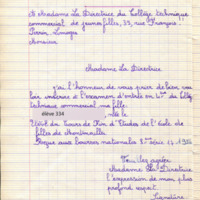 A Madame La Directrice du Collège technique
commercial de jeunes filles, 35, rue François
Perrin, Limoges
Monsieur
Madame La Directrice
j'ai l'honneur de vous prier de bien vou
loir inscrire à l'examen d'entrée en du Collège
technique commercial ma fille
élève 334 , née le
de Cours de Fin d'Études de l'école de
filles de Montmailler
Reçue aux bourses nationales 1ère série
Veuillez agréer
Madame La Directrice
l'expression de mon plus
profond respect
Signature